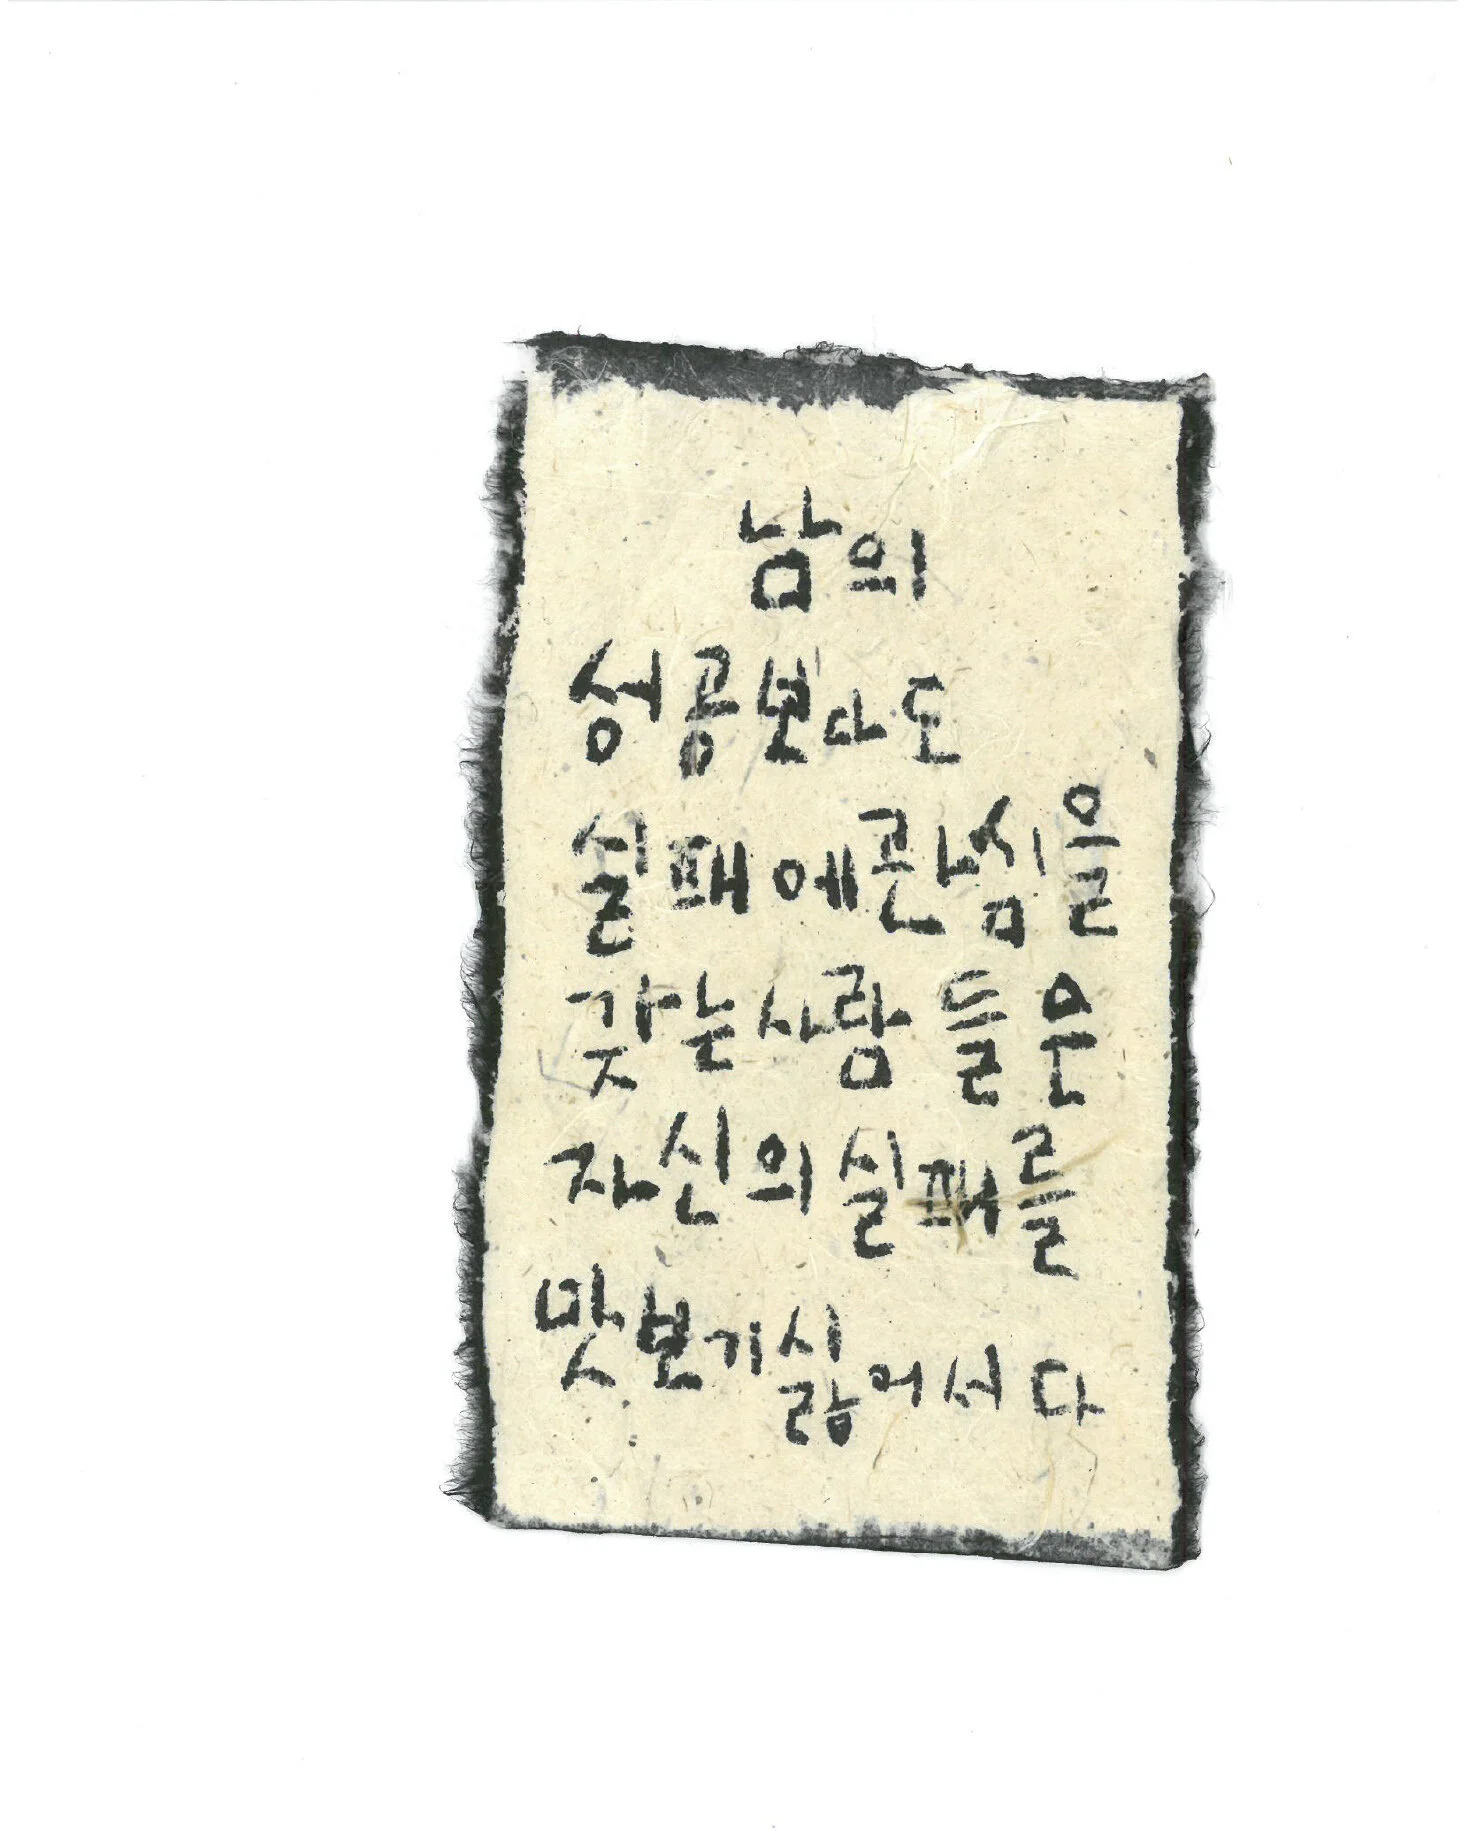 남의
성공보다도
실패에관심을
갖는사람들은
자신의실패를
맛보기싫어서다